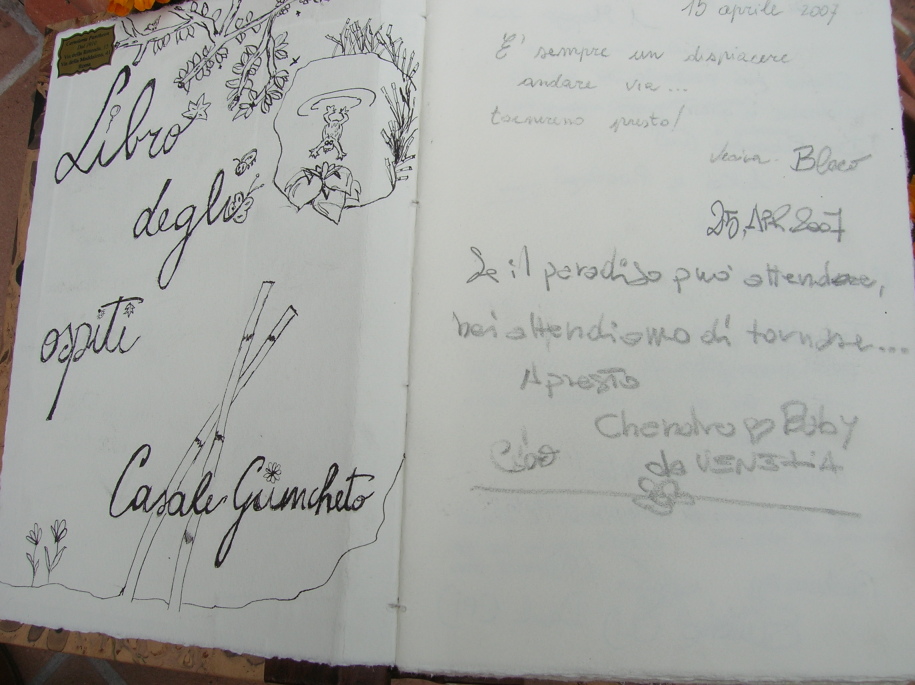 Libro
degli
ospiti
Casale Giuncheto
15 aprile 2007
E' sempre un dispiacere
andare via...
torneremo presto!
25, APR. 2007
Se il paradiso può attendere,
noi attendiamo di tornare...
A presto
Chandra Boby
Ciao da VENEZIA